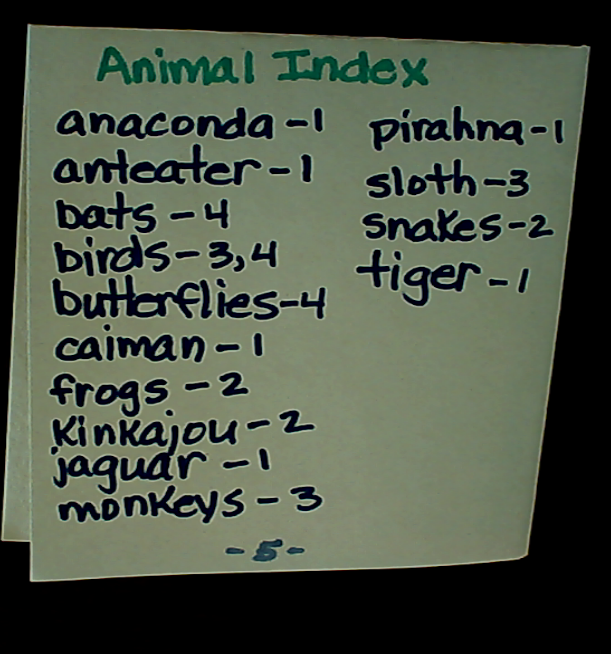 Animal Index
anaconda - 1
anteater - 1
bats - 4
birds - 3, 4
butterflies - 4
caiman - 1
frogs - 2
kinkajou - 2
jaguar - 1
monkeys - 3
pirahna - 1
sloth - 3
snakes - 2
tiger - 1
- 5 -